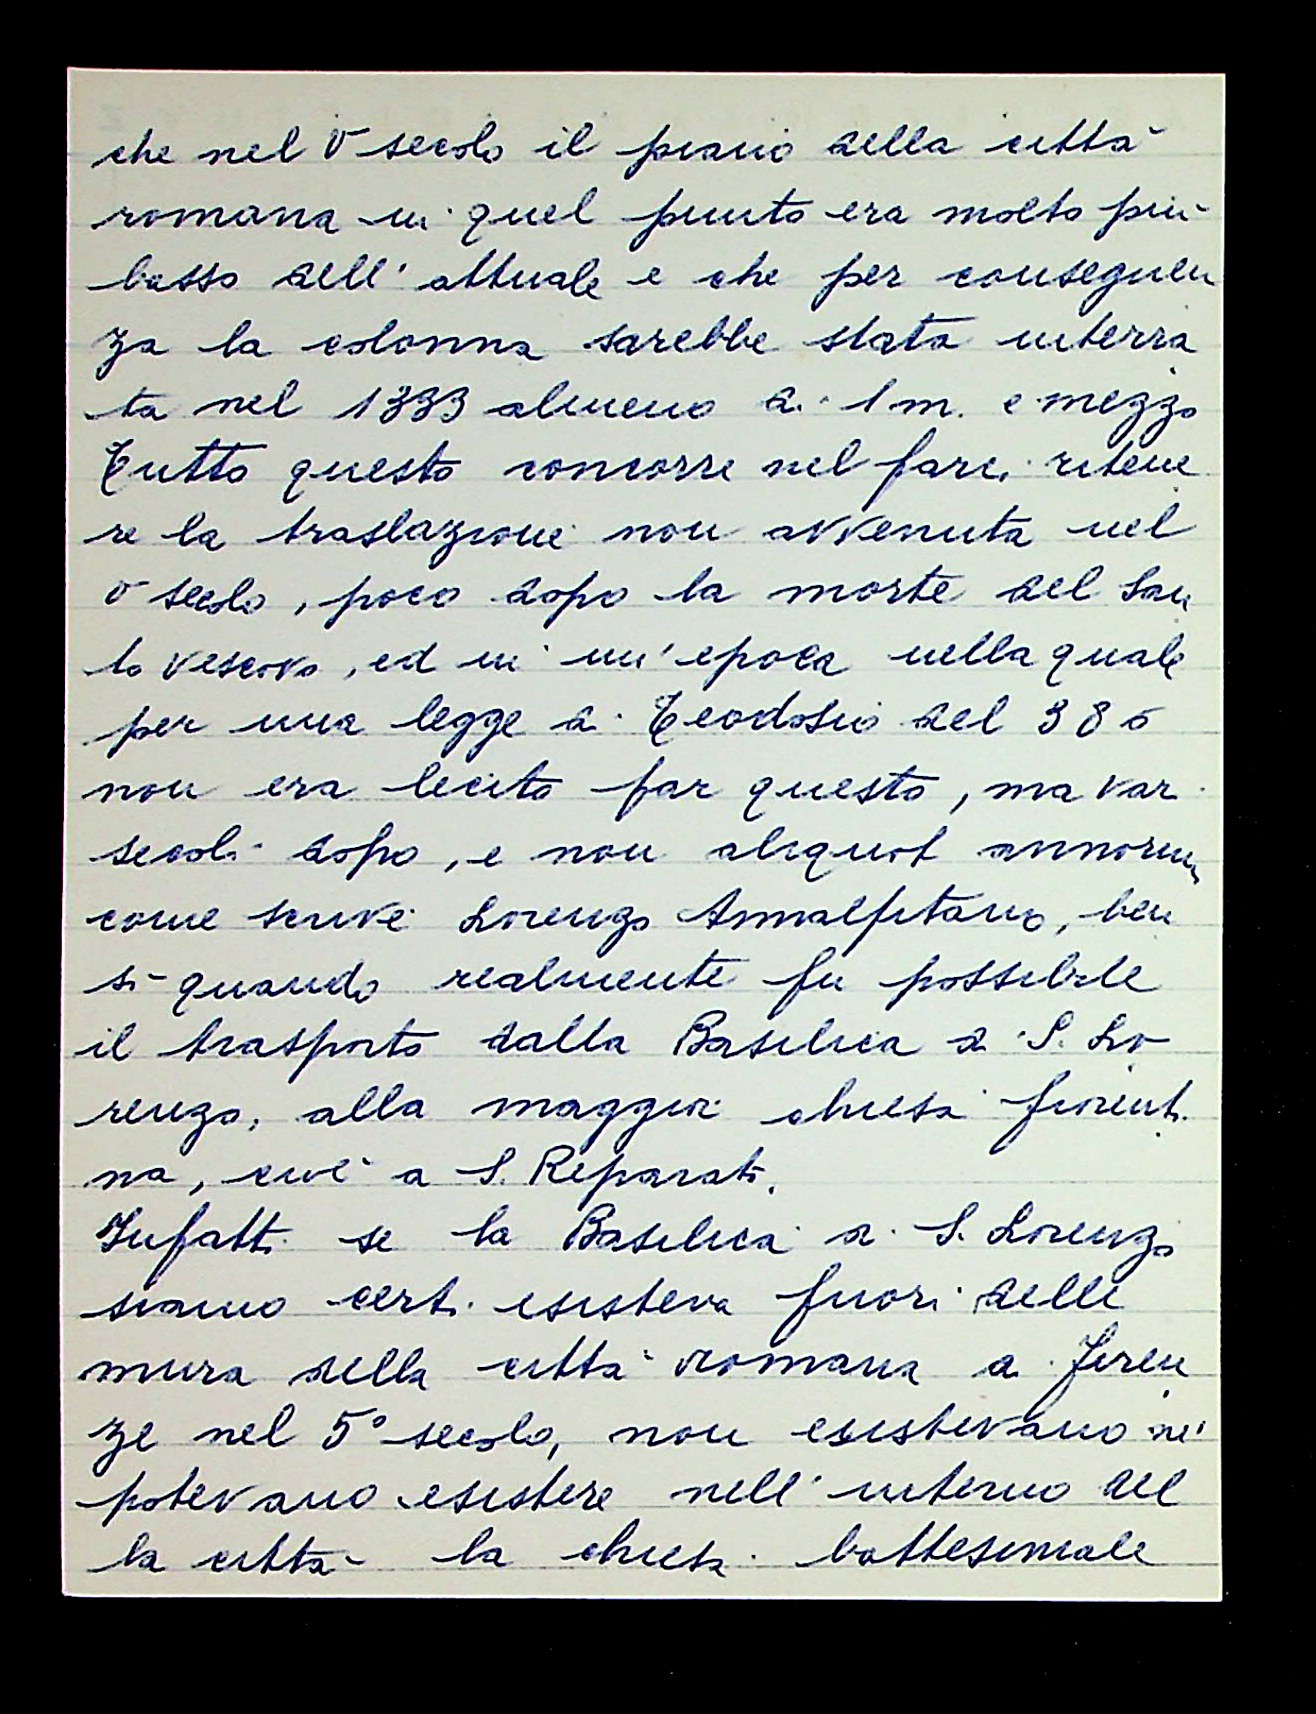 che nel V secolo il piano della città
romana in quel punto era molto più
basso dell'attuale e che per conseguen
za la colonna sarebbe stata interra
ta nel 1333 almeno di 1 m. e mezzo
Tutto questo concorre nel farci ritene
re la traslazione non avvenuta nel
V secolo, poco dopo la morte del San
to vescovo, ed in un'epoca nella quale
per una legge di Teodosio del 386
non era lecito far questo, ma vari
secoli dopo, e non aliquot annorum
come scrive Lorenzo Ammalfitano, ben
sì quando realmente fu possibile
il trasporto dalla Basilica di S. Lo
renzo, alla maggior chiesa fiorenti
na, cioè a S. Reparata.
Infatti se la Basilica di S. Lorenzo
siamo certi esisteva fuori delle
mura della città romana di Firen
ze nel 5° secolo, non esistevano nè
potevano esistere nell'interno del
la città la chiesa battesimale